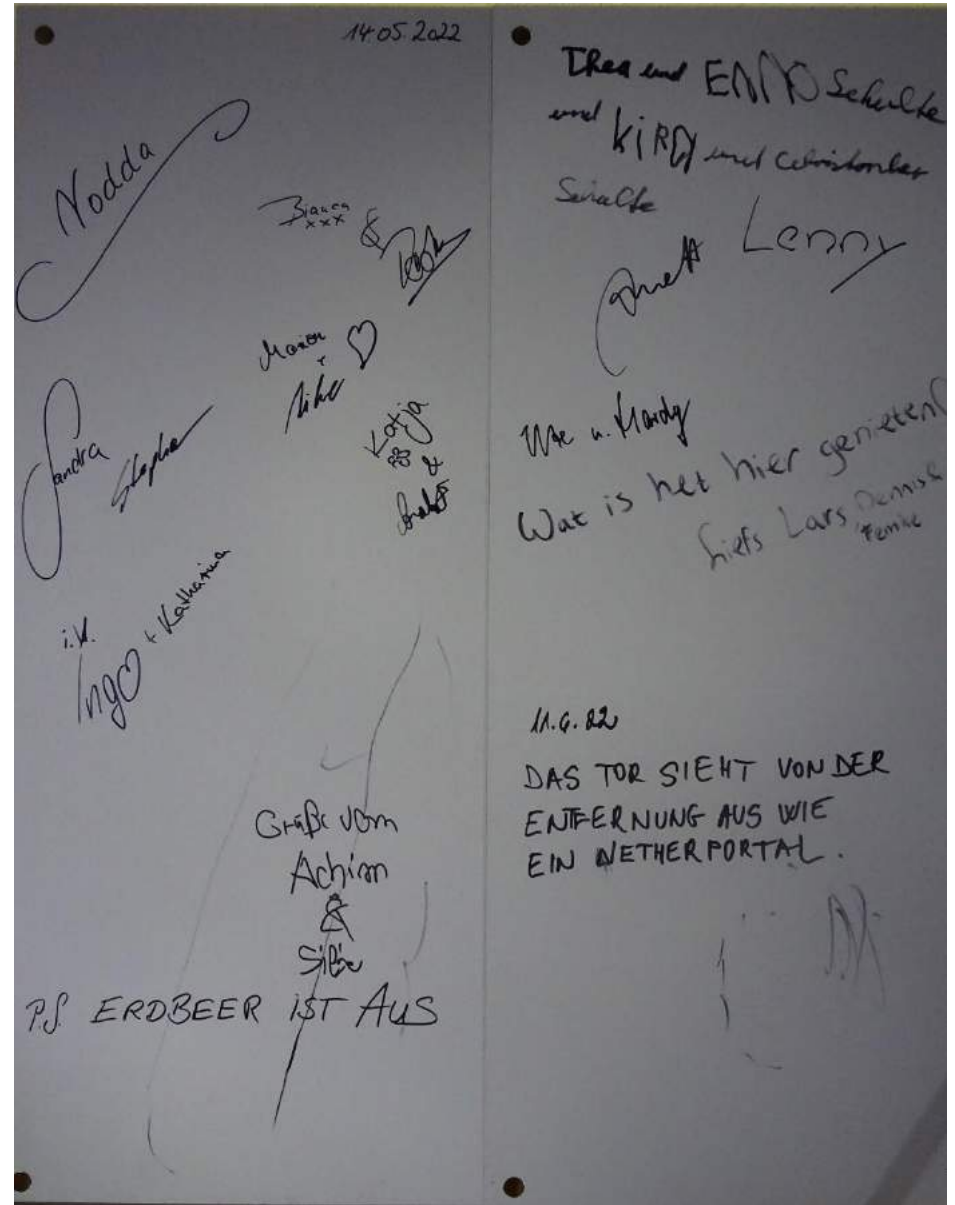 14.05.2022
Nodda
Bianca
xxx
&
Marion
+
Mike
Sandra
Stephan
Katja
&
i.V.
Ingo + Katharina
Grüße vom
Achim
&
P.S. ERDBEER IST AUS
Thea und ENNO Schulte
und KIRA und
Schulte
Lenny
Annett
Ute u. Hardy
Wat is het hier genieten!
Liefs Lars Dennis &
Femke
11.6.22
DAS TOR SIEHT VON DER
ENTFERNUNG AUS WIE
EIN NETHERPORTAL.